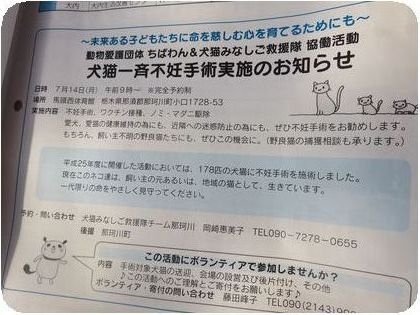 ～未来ある子どもたちに命を慈しむ心を育てるためにも～
動物愛護団体 ちばわん＆犬猫みなしご救援隊 協働活動
犬猫一斉不妊手術実施のお知らせ
日時 7月14日(月) 午前9時～ ※完全予約制
場所 馬頭西体育館 栃木県那須郡那珂川町小口1728-53
実施内容 不妊手術、ワクチン接種、ノミ・マダニ駆除
愛犬、愛猫の健康維持の為にも、近隣への迷惑防止の為にも、ぜひ不妊手術をお勧めします。
もちろん、飼い主不明の野良猫たちにも、ぜひこの機会に。(野良猫の捕獲相談も承ります。)
平成25年度に開催した活動においては、178匹の犬猫に不妊手術を施術しました。
現在このネコ達は、飼い主の元あるいは、地域の猫として、生きています。
一代限りの命をやさしく見守ってください。
予約・問い合わせ 犬猫みなしご救援隊チーム那珂川 岡崎恵美子 TEL090-7278-0655
後援 那珂川町
この活動にボランティアで参加しませんか？
内容 手術対象犬猫の送迎、会場の設営及び後片付け、その他
♪この活動へのご理解とご寄付をお願いします♪
ボランティア・寄付の問い合わせ 藤田峰子 TEL090(2143)